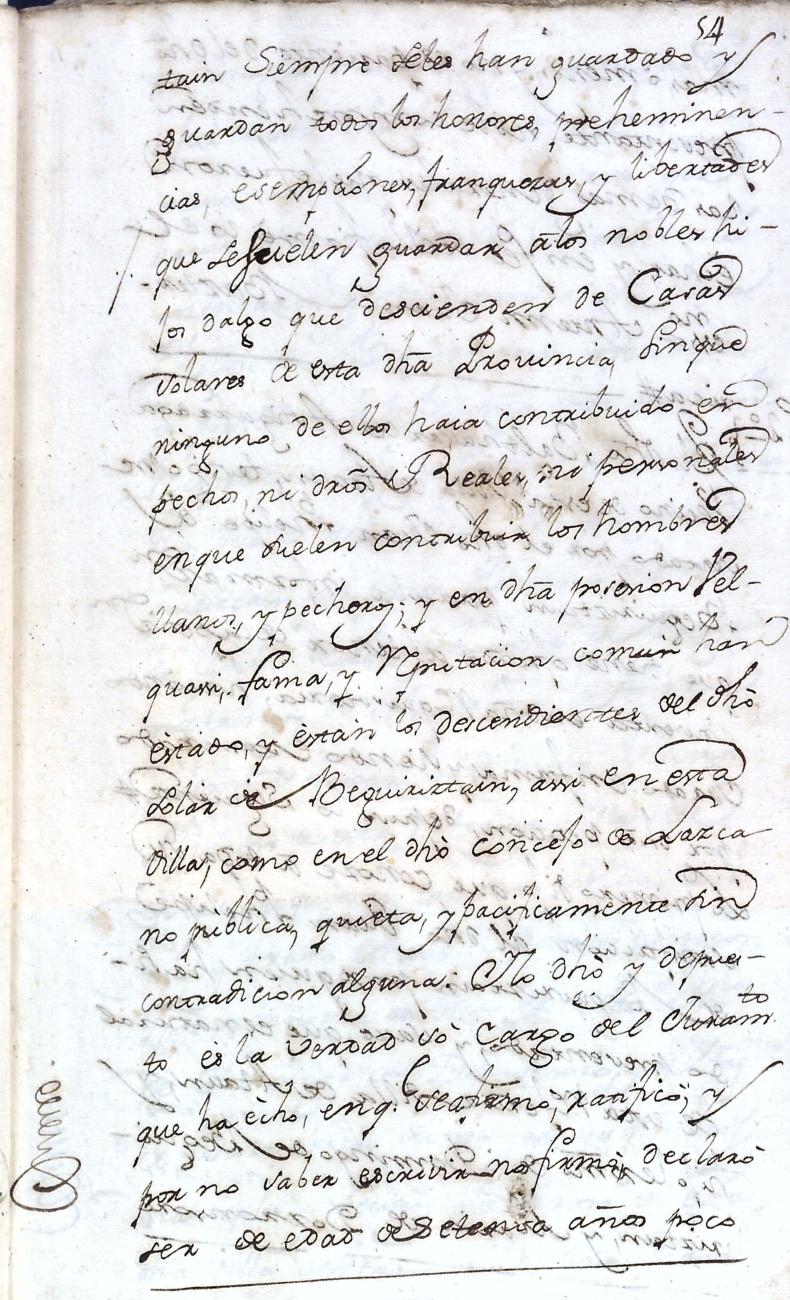 54
tain siempre seles han guardado y
guardan todos los honores, preheminen-
cias, esempciones, franquezas, y libertades
que sesuelen guardar álos nobles hi-
jos dalgo que descienden de Casas
solares de esta dhã Provincia, sinque
ninguno de ellos haia contribuido en
pechos, ni dros̃ Reales, ni personales
enque suelen contribuir los hombres
llanos, y pecheros; y en dhã posesion vel-
quassi, fama, y reputacion comun han
estado, y están los descendientes del dhõ
solar de Beguiriztain, assi en esta
villa, como en el dhõ concejo de Lazca
no publica, quieta, y pacificamente sin
contradicion alguna: Y lo dhõ y depues-
to és la verdad só cargo del Juramto
que ha écho, en q.e seafirmó, ratificó, y
por no saber escrivir no firmó, declaró
ser de edad de setenta años poco